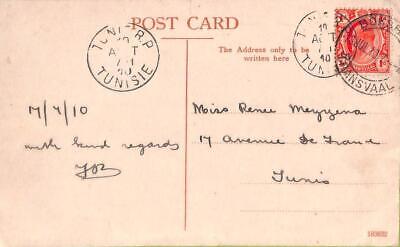 POST CARD
The Address only to be
written here
TUNIS R.P
AOUT
10
TUNISIE
TUNIS R.P
AOUT
10
TUNISIE
TRANSVAAL
17/7/10
with kind regards
Miss Renee Meyzena
17 Avenue De France
Tunis